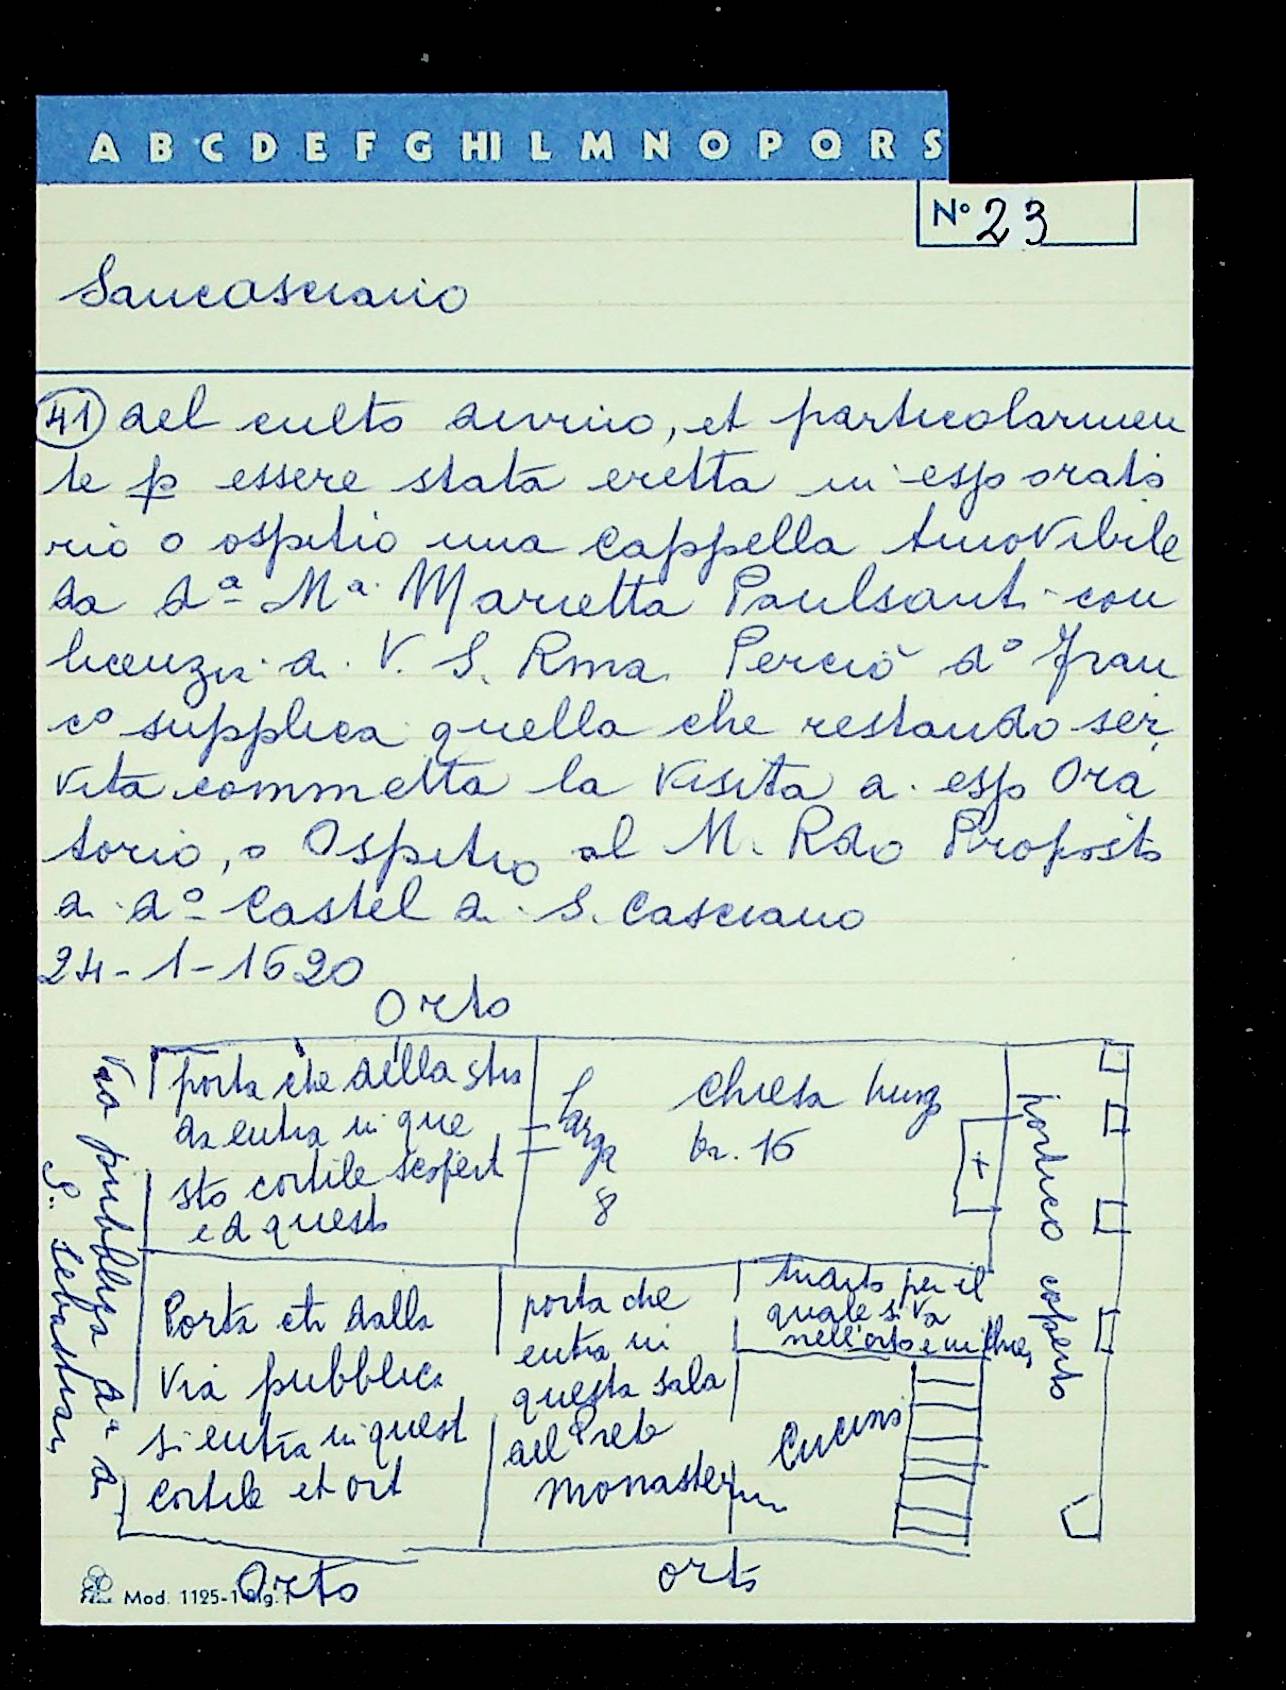 A B C D E F G HI L M N O P Q R S
N° 23
Sancasciano
41 del culto divino, et particolarmen
te p essere stata eretta in esso orato
rio o ospitio una cappella Amovibile
da da Ma Marietta Paulsant. con
licenzia di V. S. Rma. Perciò do Fran
co supplica quella che restando ser
vita commetta la visita di esso Ora
torio, o Ospitio al M. Rdo Proposto
di do Castel di S. Casciano
24-1-1620
Orto
porta che della stra
da entra in que
sto cortile scopert
ed questo
Larga
8
Chiesa lunga
br. 16
+
portico coperto
Via pubblica da di
S. Sebastian
Porta che dalla
via pubblica
si entra in quest
Cortile et ort
porta che
entra in
questa sala
del Prete
monaster
andito per il
quale si va
nell'orto e in
Cucina
Orto
orto
Mod. 1125-1